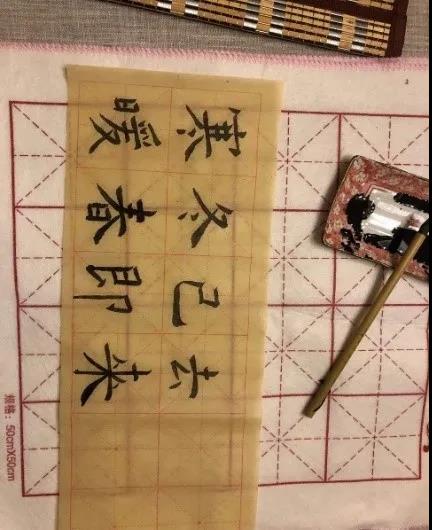 寒冬已去
暖春即来
规格：50cmX50cm